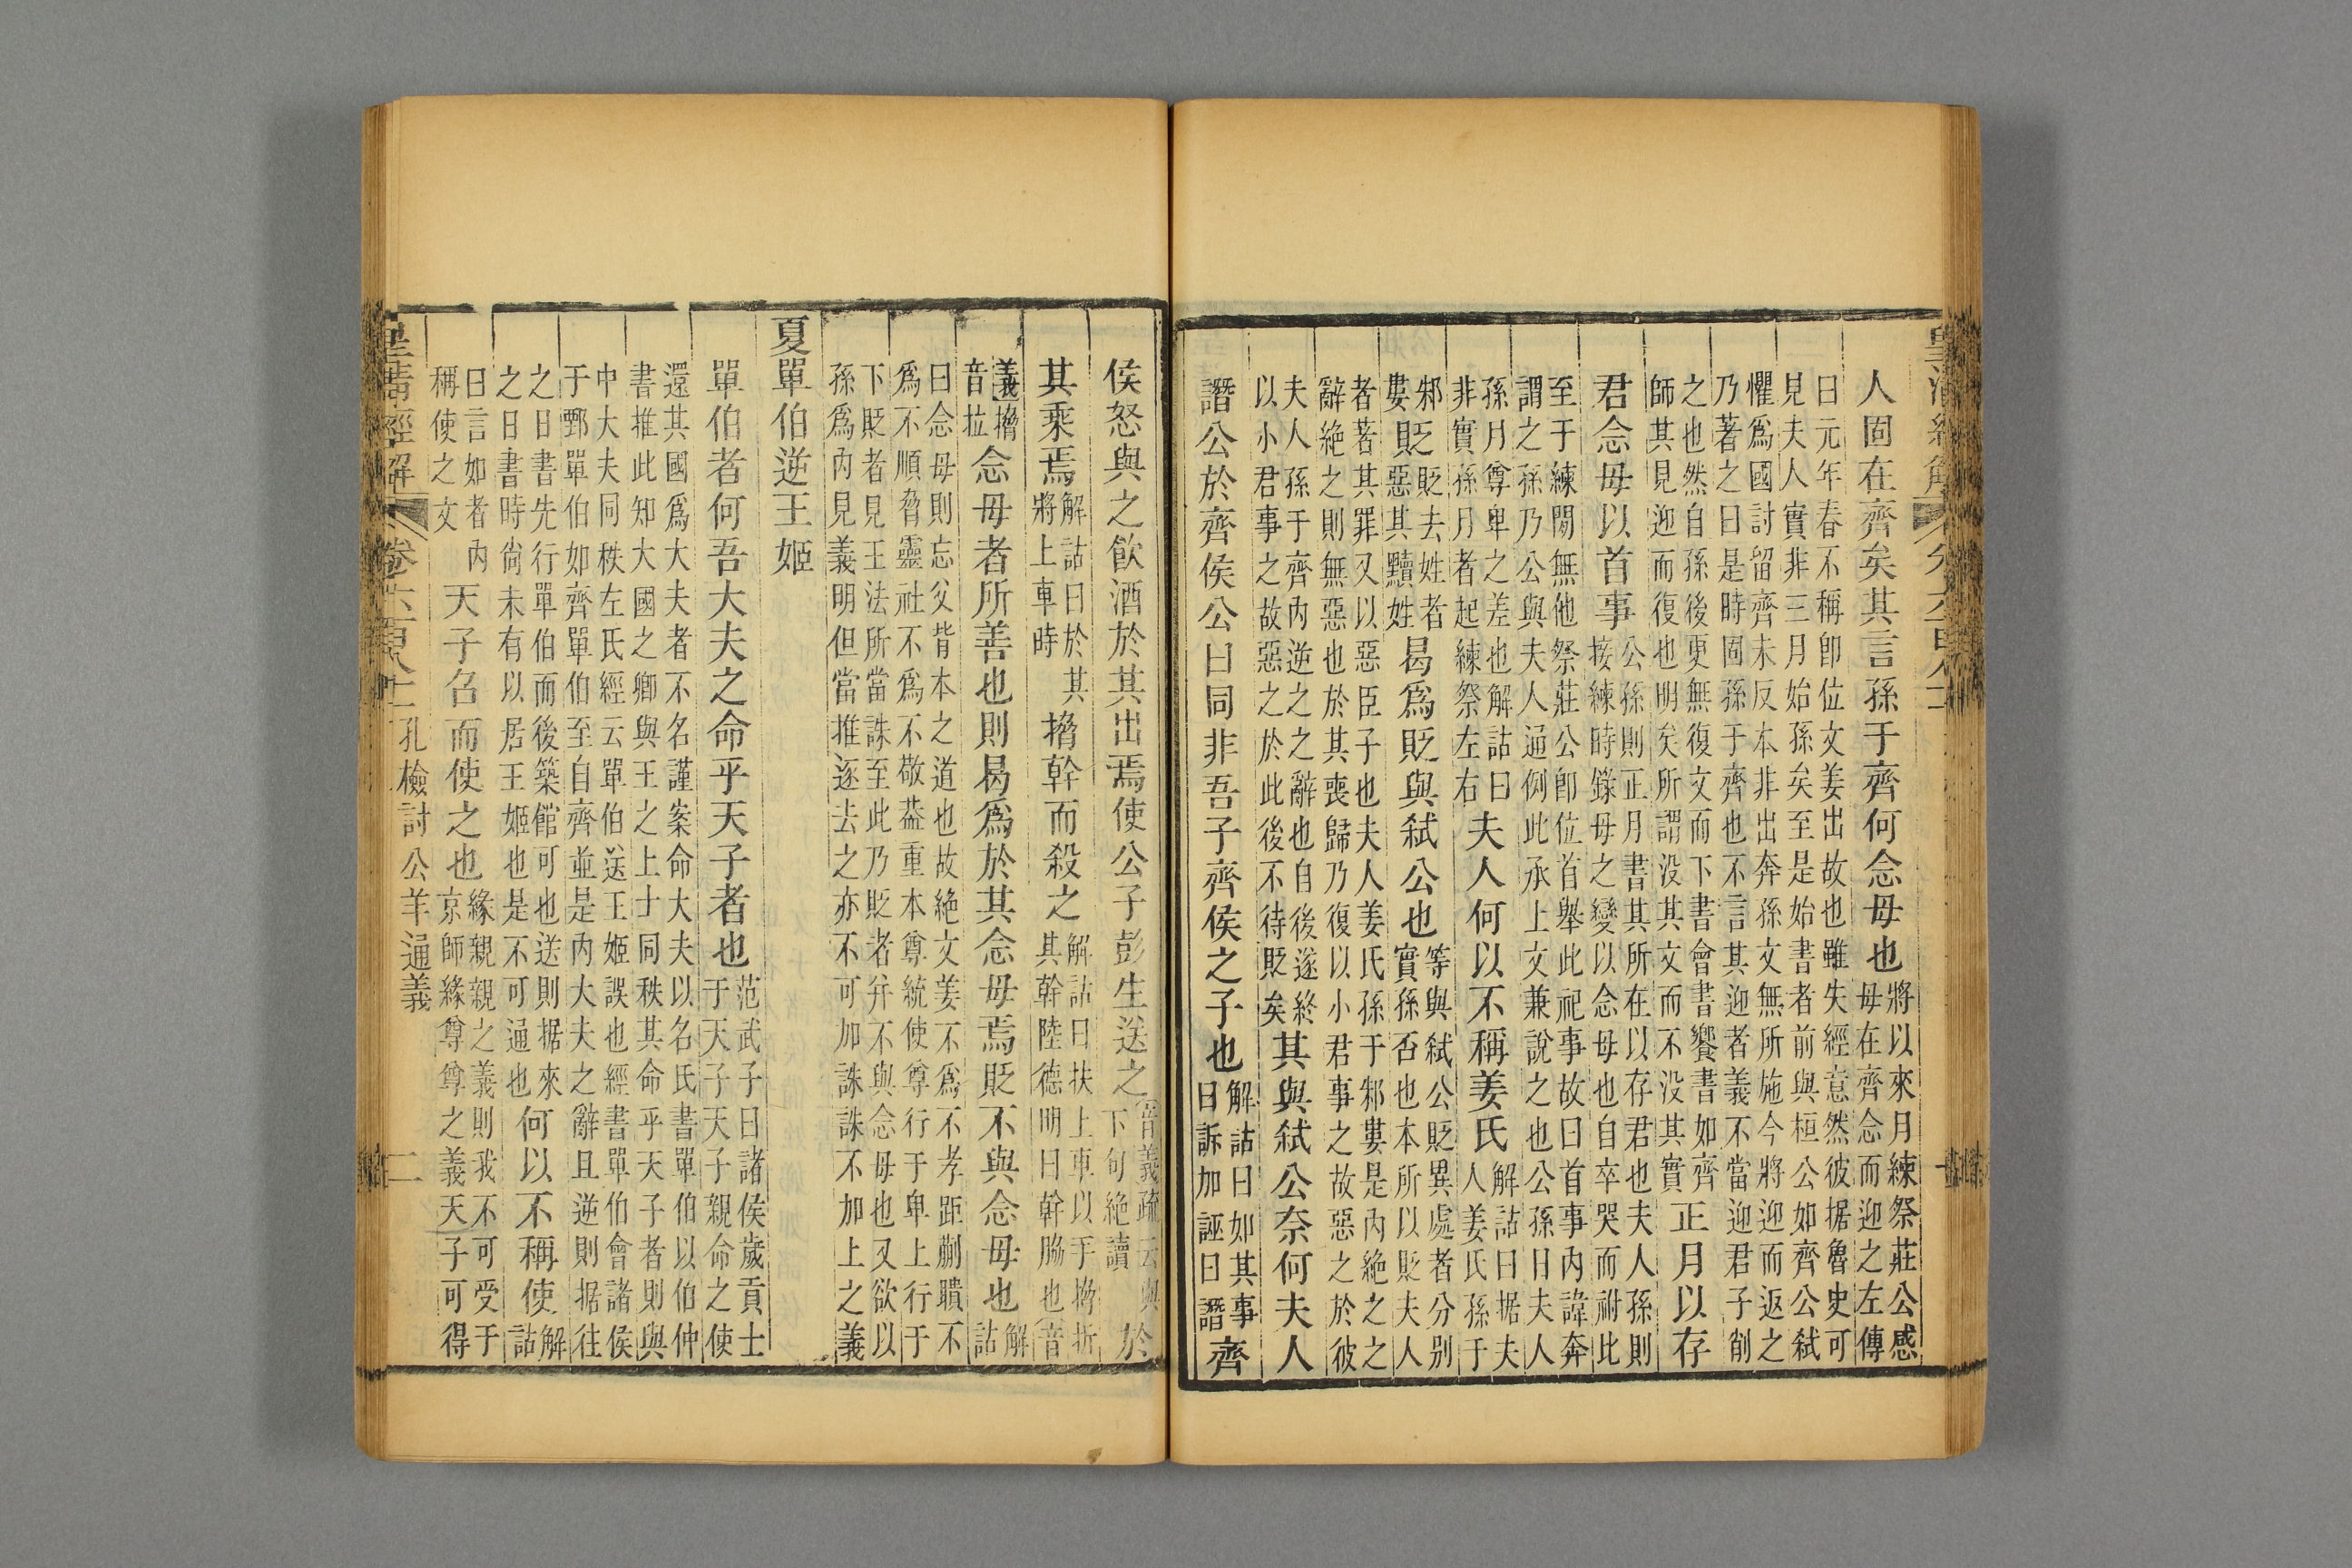 人固在齊矣其言孫于齊何念母也
將以來月練祭莊公感
母在齊念而迎之左傳
曰元年春不稱卽位文姜出故也雖失經意然彼据魯史可
見夫人實非三月始孫矣至是始書者前與桓公如齊公弒
懼爲國討留齊未反本非出奔孫文無所施今將迎而返之
乃著之曰是時固孫于齊也不言其迎者義不當迎君子削
之也然自孫後更無復文而下書會書饗書如齊
師其見迎而復也明矣所謂没其文而不没其實
正月以存
君念母以首事
公孫則正月書其所在以存君也夫人孫則
接練時錄母之變以念母也自卒哭而祔此
至于練閒無他祭莊公卽位首舉此祀事故曰首事内諱奔
謂之孫乃公與夫人通例此承上文兼說之也公孫日夫人
孫月尊卑之差也解詁曰
非實孫月者起練祭左右
夫人何以不稱姜氏
解詁曰据夫
人姜氏孫于
邾
婁
貶
貶去姓者
惡其黷姓
曷爲貶與弒公也
等與弒公貶異處者分别
實孫否也本所以貶夫人
者著其罪又以惡臣子也夫人姜氏孫于邾婁是内絶之之
辭絶之則無惡也於其喪歸乃復以小君事之故惡之於彼
夫人孫于齊内逆之之辭也自後遂終
以小君事之故惡之於此後不待貶矣
其與弒公奈何夫人
譖公於齊侯公曰同非吾子齊侯之子也
解詁曰如其事
曰訴加誣曰譖
齊
侯怒與之飮酒於其出焉使公子彭生送之
音義疏云與
下句絶讀
於
其乘焉
解詁曰於其
將上車時
搚幹而殺之
解詁曰扶上車以手搚折
其幹陸德明曰幹脇也音
義搚
音拉
念母者所善也則曷爲於其念母焉貶不與念母也
解
詁
曰念母則忘父背本之道也故絶文姜不爲不孝距蒯聵不
爲不順脅靈社不爲不敬葢重本尊統使尊行于卑上行于
下貶者見王法所當誅至此乃貶者并不與念母也又欲以
孫爲内見義明但當推逐去之亦不可加誅誅不加上之義
夏單伯逆王姬
單伯者何吾大夫之命乎天子者也
范武子曰諸侯歲貢士
于天子天子親命之使
還其國爲大夫者不名謹案命大夫以名氏書單伯以伯仲
書推此知大國之卿與王之上士同秩其命乎天子者則與
中大夫同秩左氏經云單伯送王姬誤也經書單伯會諸侯
于鄄單伯如齊單伯至自齊並是内大夫之辭且逆則据往
之日書先行單伯而後築館可也送則据來
之日書時尚未有以居王姬也是不可通也
何以不稱使
解
詁
曰言如者内
稱使之文
天子召而使之也
緣親親之義則我不可受于
京師緣尊尊之義天子可得
皇清經解
卷六百八十
孔檢討公羊通義
二